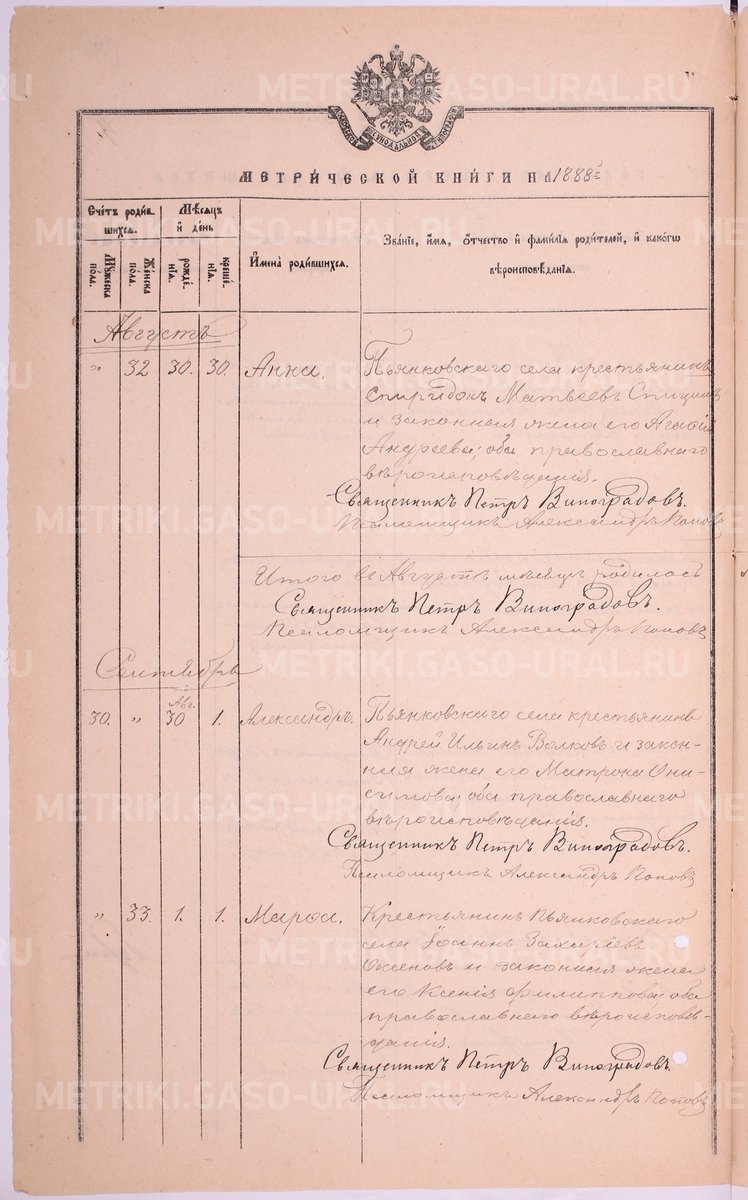 МЕТРИ́ЧЕСКОЙ КНИ́ГИ НА 1888 г.
Сче́тъ роди́в
шихся.
Мѣ́сяцъ
и҆ де́нь
Му́жеска
по́ла.
Же́нска
по́ла.
рожде́
нїѧ.
креще́
нїѧ.
И҆мена̀ роди́вшихсѧ.
Зва́нїе, и҆́мѧ, ѻ҆́тчество и҆ фами́лїѧ роди́телей, и҆ како́гѡ
вѣроисповѣ́данїѧ.
Августъ
" 32 30. 30. Анна.
Пьянковскаго села крестьянинъ
Спиридонъ Матвеевъ Спицинъ
и законная жена его Агафiя
Андреева; оба православнаго
вѣроисповѣданiя.
Священникъ Петръ Виноградовъ.
Псаломщикъ Александръ Поповъ
Итого въ Августѣ мѣсяцѣ родилась
Священникъ Петръ Виноградовъ.
Псаломщикъ Александръ Поповъ
Сентябрь
30. " Авг. 30 1. Александръ.
Пьянковскаго села крестьянинъ
Андрей Ильинъ Волковъ и закон-
ная жена его Матрона Они-
симова; оба православнаго
вѣроисповѣданiя.
Священникъ Петръ Виноградовъ.
Псаломщикъ Александръ Поповъ
" 33. 1. 1. Марѳа.
Крестьянинъ Пьянковскаго
села Iоаннъ Захарiевъ
Оксеновъ и законная жена
его Ксенiя Филиппова; оба
православнаго вѣроисповѣ-
данiя.
Священникъ Петръ Виноградовъ.
Псаломщикъ Александръ Поповъ
METRIKI.GASO-URAL.RU